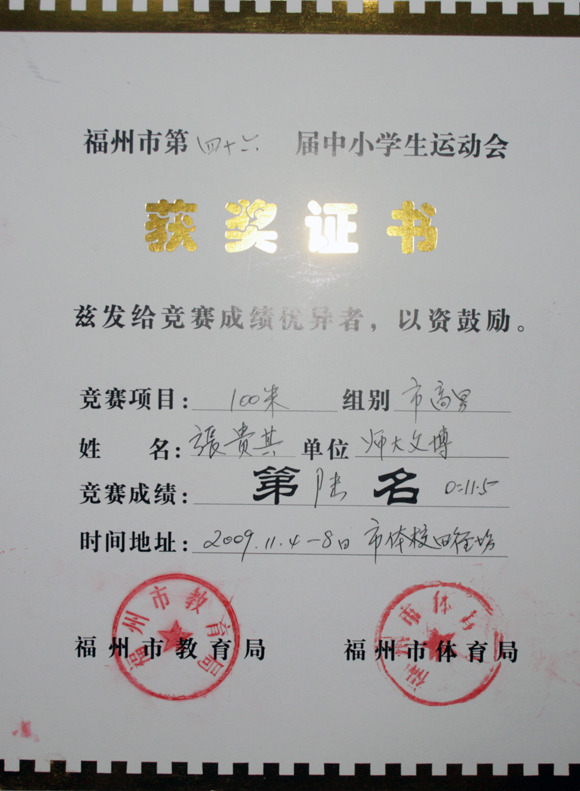 福州市第四十六届中小学生运动会
获奖证书
兹发给竞赛成绩优异者，以资鼓励。
竞赛项目：100米 组别 市高男
姓名：張貴其 单位 师大文博
竞赛成绩：第陆名 0=11.5
时间地址：2009.11.4-8日 市体校田径场
福州市教育局 福州市体育局
福州市教育局
福州市体育局